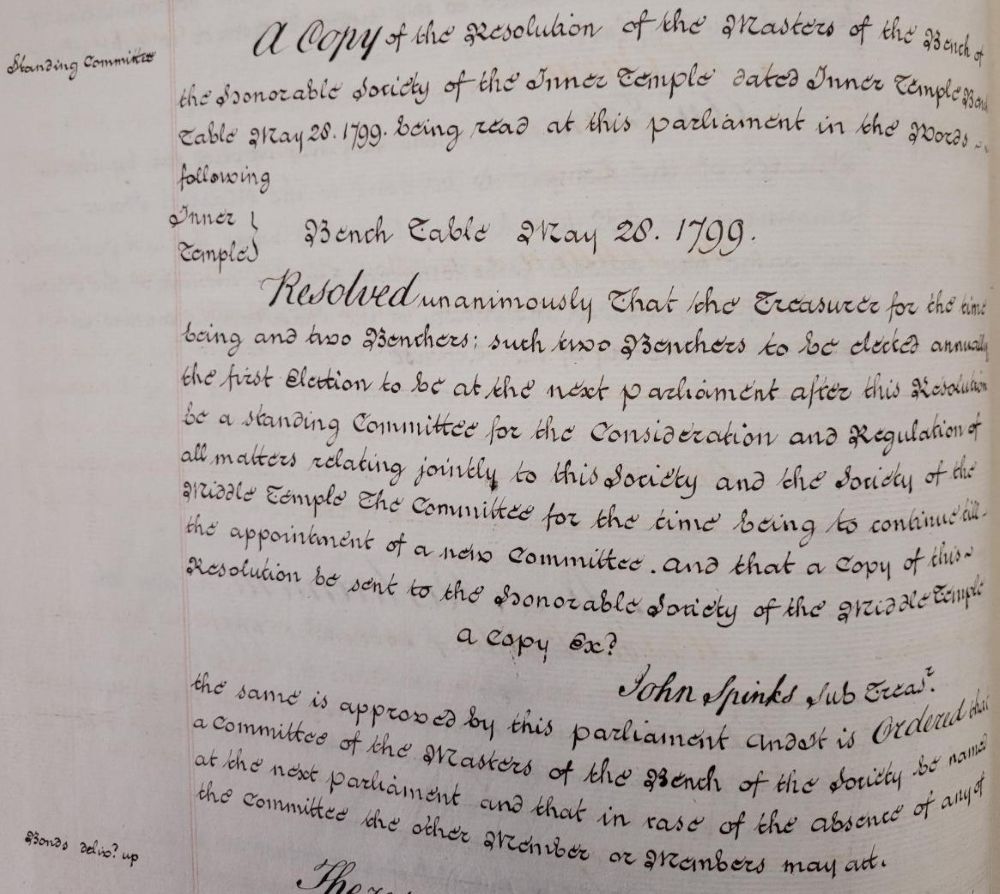 Standing Committee
A Copy of the Resolution of the Masters of the Bench of
the Honorable Society of the Inner Temple dated Inner Temple Bench
Table May 28. 1799. being read at this parliament in the Words
following
Inner }
Temple }
Bench Table May 28. 1799.
Resolved unanimously That the Treasurer for the time
being and two Benchers; such two Benchers to be elected annually
the first Election to be at the next parliament after this Resolution
be a standing Committee for the Consideration and Regulation of
all matters relating jointly to this Society and the Society of the
Middle Temple The Committee for the time being to continue till
the appointment of a new Committee. and that a Copy of this
Resolution be sent to the Honorable Society of the Middle Temple
a Copy Exd
John Spinks Sub Treasr.
the same is approved by this parliament and it is Ordered that
a Committee of the Masters of the Bench of the Society be named
at the next parliament and that in case of the absence of any of
the Committee the other Member or Members may act.
Bonds delivd up